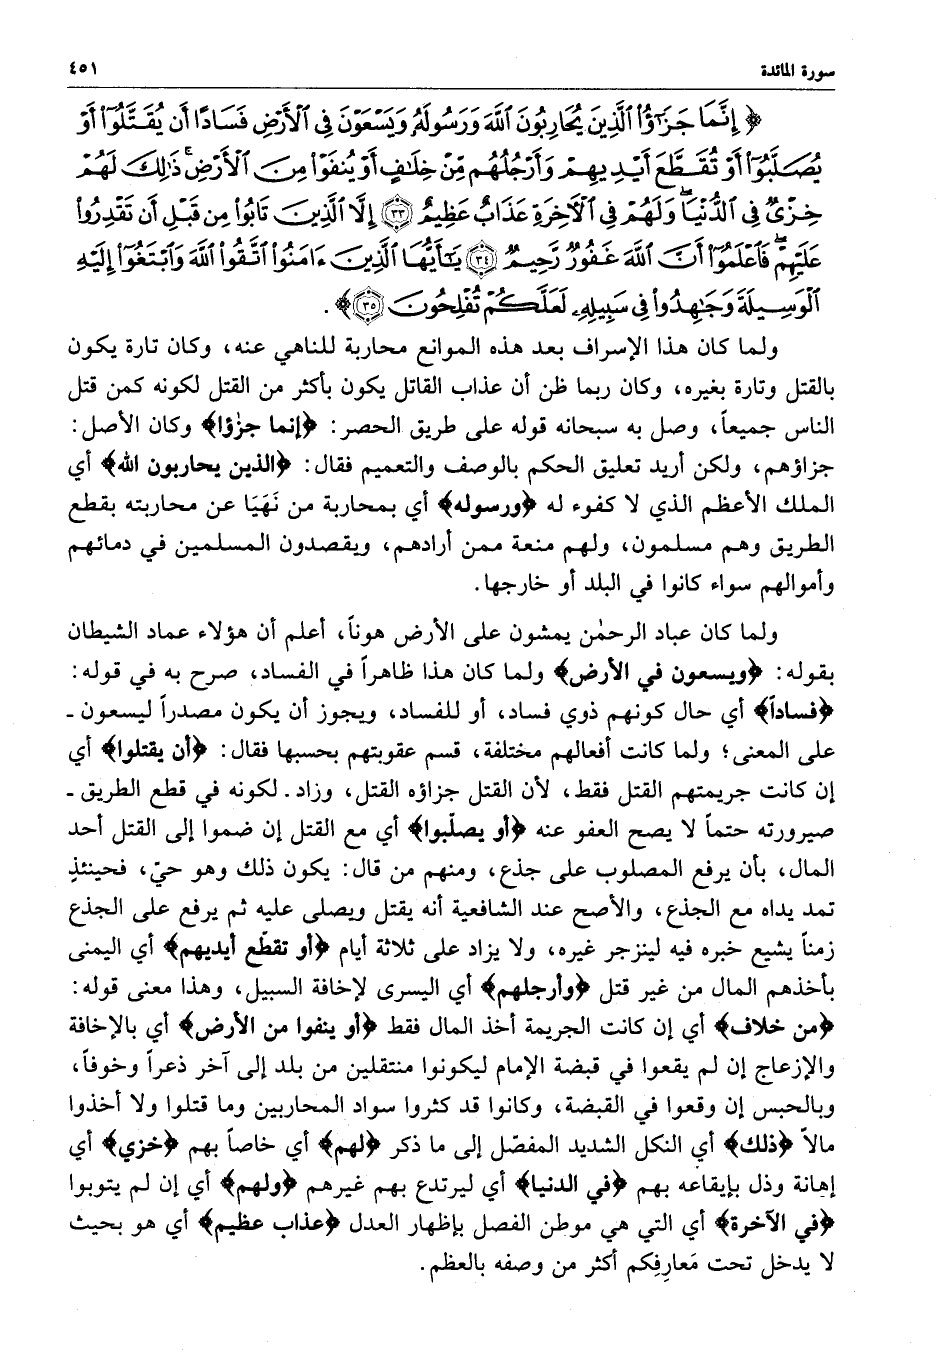 سورة المائدة ٤٥١
﴿ إِنَّمَا جَزَٰٓؤُا۟ ٱلَّذِينَ يُحَارِبُونَ ٱللَّهَ وَرَسُولَهُۥ وَيَسْعَوْنَ فِى ٱلْأَرْضِ فَسَادًا أَن يُقَتَّلُوٓا۟ أَوْ
يُصَلَّبُوٓا۟ أَوْ تُقَطَّعَ أَيْدِيهِمْ وَأَرْجُلُهُم مِّنْ خِلَٰفٍ أَوْ يُنفَوْا۟ مِنَ ٱلْأَرْضِ ۚ ذَٰلِكَ لَهُمْ
خِزْىٌ فِى ٱلدُّنْيَا ۖ وَلَهُمْ فِى ٱلْءَاخِرَةِ عَذَابٌ عَظِيمٌ ٣٣ إِلَّا ٱلَّذِينَ تَابُوا۟ مِن قَبْلِ أَن تَقْدِرُوا۟
عَلَيْهِمْ ۖ فَٱعْلَمُوٓا۟ أَنَّ ٱللَّهَ غَفُورٌ رَّحِيمٌ ٣٤ يَٰٓأَيُّهَا ٱلَّذِينَ ءَامَنُوا۟ ٱتَّقُوا۟ ٱللَّهَ وَٱبْتَغُوٓا۟ إِلَيْهِ
ٱلْوَسِيلَةَ وَجَٰهِدُوا۟ فِى سَبِيلِهِۦ لَعَلَّكُمْ تُفْلِحُونَ ٣٥ ﴾.
ولما كان هذا الإسراف بعد هذه الموانع محاربة للناهي عنه، وكان تارة يكون
بالقتل وتارة بغيره، وكان ربما ظن أن عذاب القاتل يكون بأكثر من القتل لكونه كمن قتل
الناس جميعاً، وصل به سبحانه قوله على طريق الحصر: ﴿إنما جزٰؤا﴾ وكان الأصل:
جزاؤهم، ولكن أريد تعليق الحكم بالوصف والتعميم فقال: ﴿الذين يحاربون الله﴾ أي
الملك الأعظم الذي لا كفوء له ﴿ورسوله﴾ أي بمحاربة من نَهَيَا عن محاربته بقطع
الطريق وهم مسلمون، ولهم منعة ممن أرادهم، ويقصدون المسلمين في دمائهم
وأموالهم سواء كانوا في البلد أو خارجها.
ولما كان عباد الرحمٰن يمشون على الأرض هوناً، أعلم أن هؤلاء عماد الشيطان
بقوله: ﴿ويسعون في الأرض﴾ ولما كان هذا ظاهراً في الفساد، صرح به في قوله:
﴿فساداً﴾ أي حال كونهم ذوي فساد، أو للفساد، ويجوز أن يكون مصدراً ليسعون -
على المعنى؛ ولما كانت أفعالهم مختلفة، قسم عقوبتهم بحسبها فقال: ﴿أن يقتلوا﴾ أي
إن كانت جريمتهم القتل فقط، لأن القتل جزاؤه القتل، وزاد. لكونه في قطع الطريق -
صيرورته حتماً لا يصح العفو عنه ﴿أو يصلّبوا﴾ أي مع القتل إن ضموا إلى القتل أحد
المال، بأن يرفع المصلوب على جذع، ومنهم من قال: يكون ذلك وهو حيّ، فحينئذٍ
تمد يداه مع الجذع، والأصح عند الشافعية أنه يقتل ويصلى عليه ثم يرفع على الجذع
زمناً يشيع خبره فيه لينزجر غيره، ولا يزاد على ثلاثة أيام ﴿أو تقطّع أيديهم﴾ أي اليمنى
بأخذهم المال من غير قتل ﴿وأرجلهم﴾ أي اليسرى لإخافة السبيل، وهذا معنى قوله:
﴿من خلاف﴾ أي إن كانت الجريمة أخذ المال فقط ﴿أو ينفوا من الأرض﴾ أي بالإخافة
والإزعاج إن لم يقعوا في قبضة الإمام ليكونوا منتقلين من بلد إلى آخر ذعراً وخوفاً،
وبالحبس إن وقعوا في القبضة، وكانوا قد كثروا سواد المحاربين وما قتلوا ولا أخذوا
مالاً ﴿ذلك﴾ أي النكل الشديد المفصّل إلى ما ذكر ﴿لهم﴾ أي خاصاً بهم ﴿خزي﴾ أي
إهانة وذل بإيقاعه بهم ﴿في الدنيا﴾ أي ليرتدع بهم غيرهم ﴿ولهم﴾ أي إن لم يتوبوا
﴿في الآخرة﴾ أي التي هي موطن الفصل بإظهار العدل ﴿عذاب عظيم﴾ أي هو بحيث
لا يدخل تحت مَعارِفِكم أكثر من وصفه بالعظم.